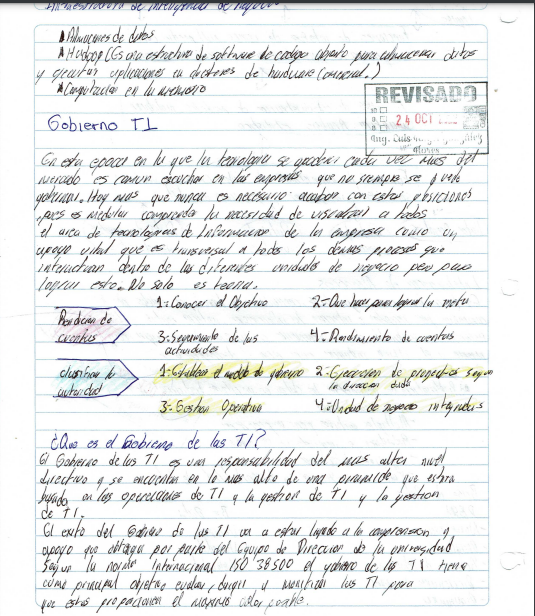 Infraestructura de inteligencia de negocios
Almacenes de datos
Hadoop (Es una estructura de software de codigo abierto para almacenar datos
y ejecutar aplicaciones en clusteres de hardware comercial.)
Computacion en la memoria
REVISADO
24 OCT
Ing. Luis
Gobierno TI
En esta epoca en la que la tecnologia se apodera cada vez mas del
mercado es comun escuchar en las empresas, que no siempre se puede
gobernar. Hoy mas que nunca es necesario acabar con estas posiciones
, pues es medular comprender la necesidad de visualizar a todos
el area de tecnologias de Informacion de la empresa como un
apoyo vital que es transversal a todos los demas procesos que
interactuan dentro de las diferentes unidades de negocio pero para
lograr esto. No solo es teoria.
Rendicion de cuentas
1=Conocer el Objetivo 2=Que hacer para lograr la meta
3=Seguimiento de las actividades 4=Rendimiento de cuentas
clarificar la autoridad
1=Establecer el modelo de gobierno 2=Ejecucion de proyectos segun la direccion dada
3=Gestion Operativa 4=Unidad de negocio integradas
¿Que es el Gobierno de las TI?
El Gobierno de las TI es una responsabilidad del mas alter nivel
directivo y se encuentra en lo mas alto de una piramide que estara
basada en las operaciones de TI y la gestion de TI y la gestion
de TI.
El exito del Gobierno de las TI va a estar ligado a la comprension y
apoyo que obtenga por parte del Equipo de Direccion de la universidad
Segun la norma Internacional ISO 38500 el gobierno de las TI tiene
como principal objetivo evaluar, dirigir y monitorizar las TI para
que estas proporcionen el maximo valor posible.